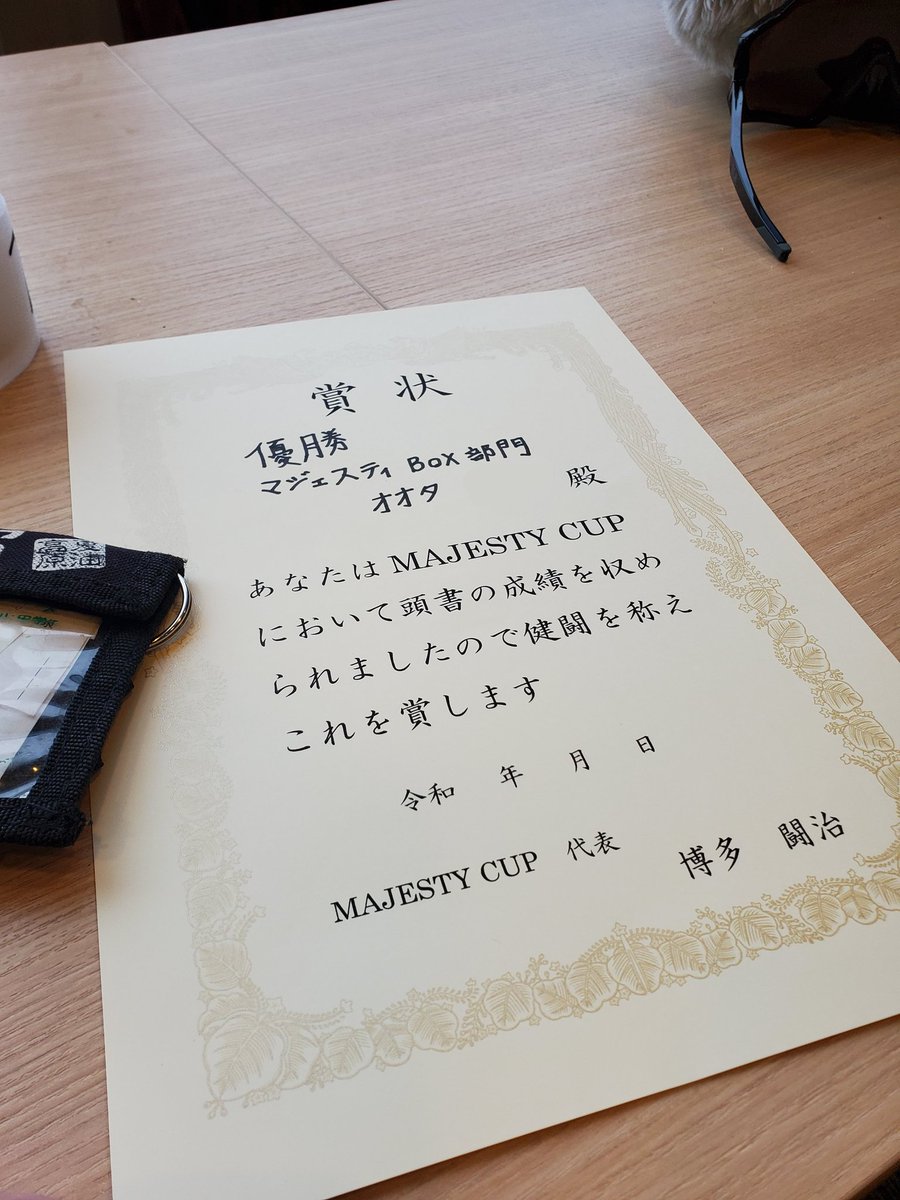 賞状
優勝
マジェスティ BOX 部門
オオタ 殿
あなたは MAJESTY CUP
において頭書の成績を収め
られましたので健闘を称え
これを賞します
令和 年 月 日
MAJESTY CUP 代表 博多 闘治